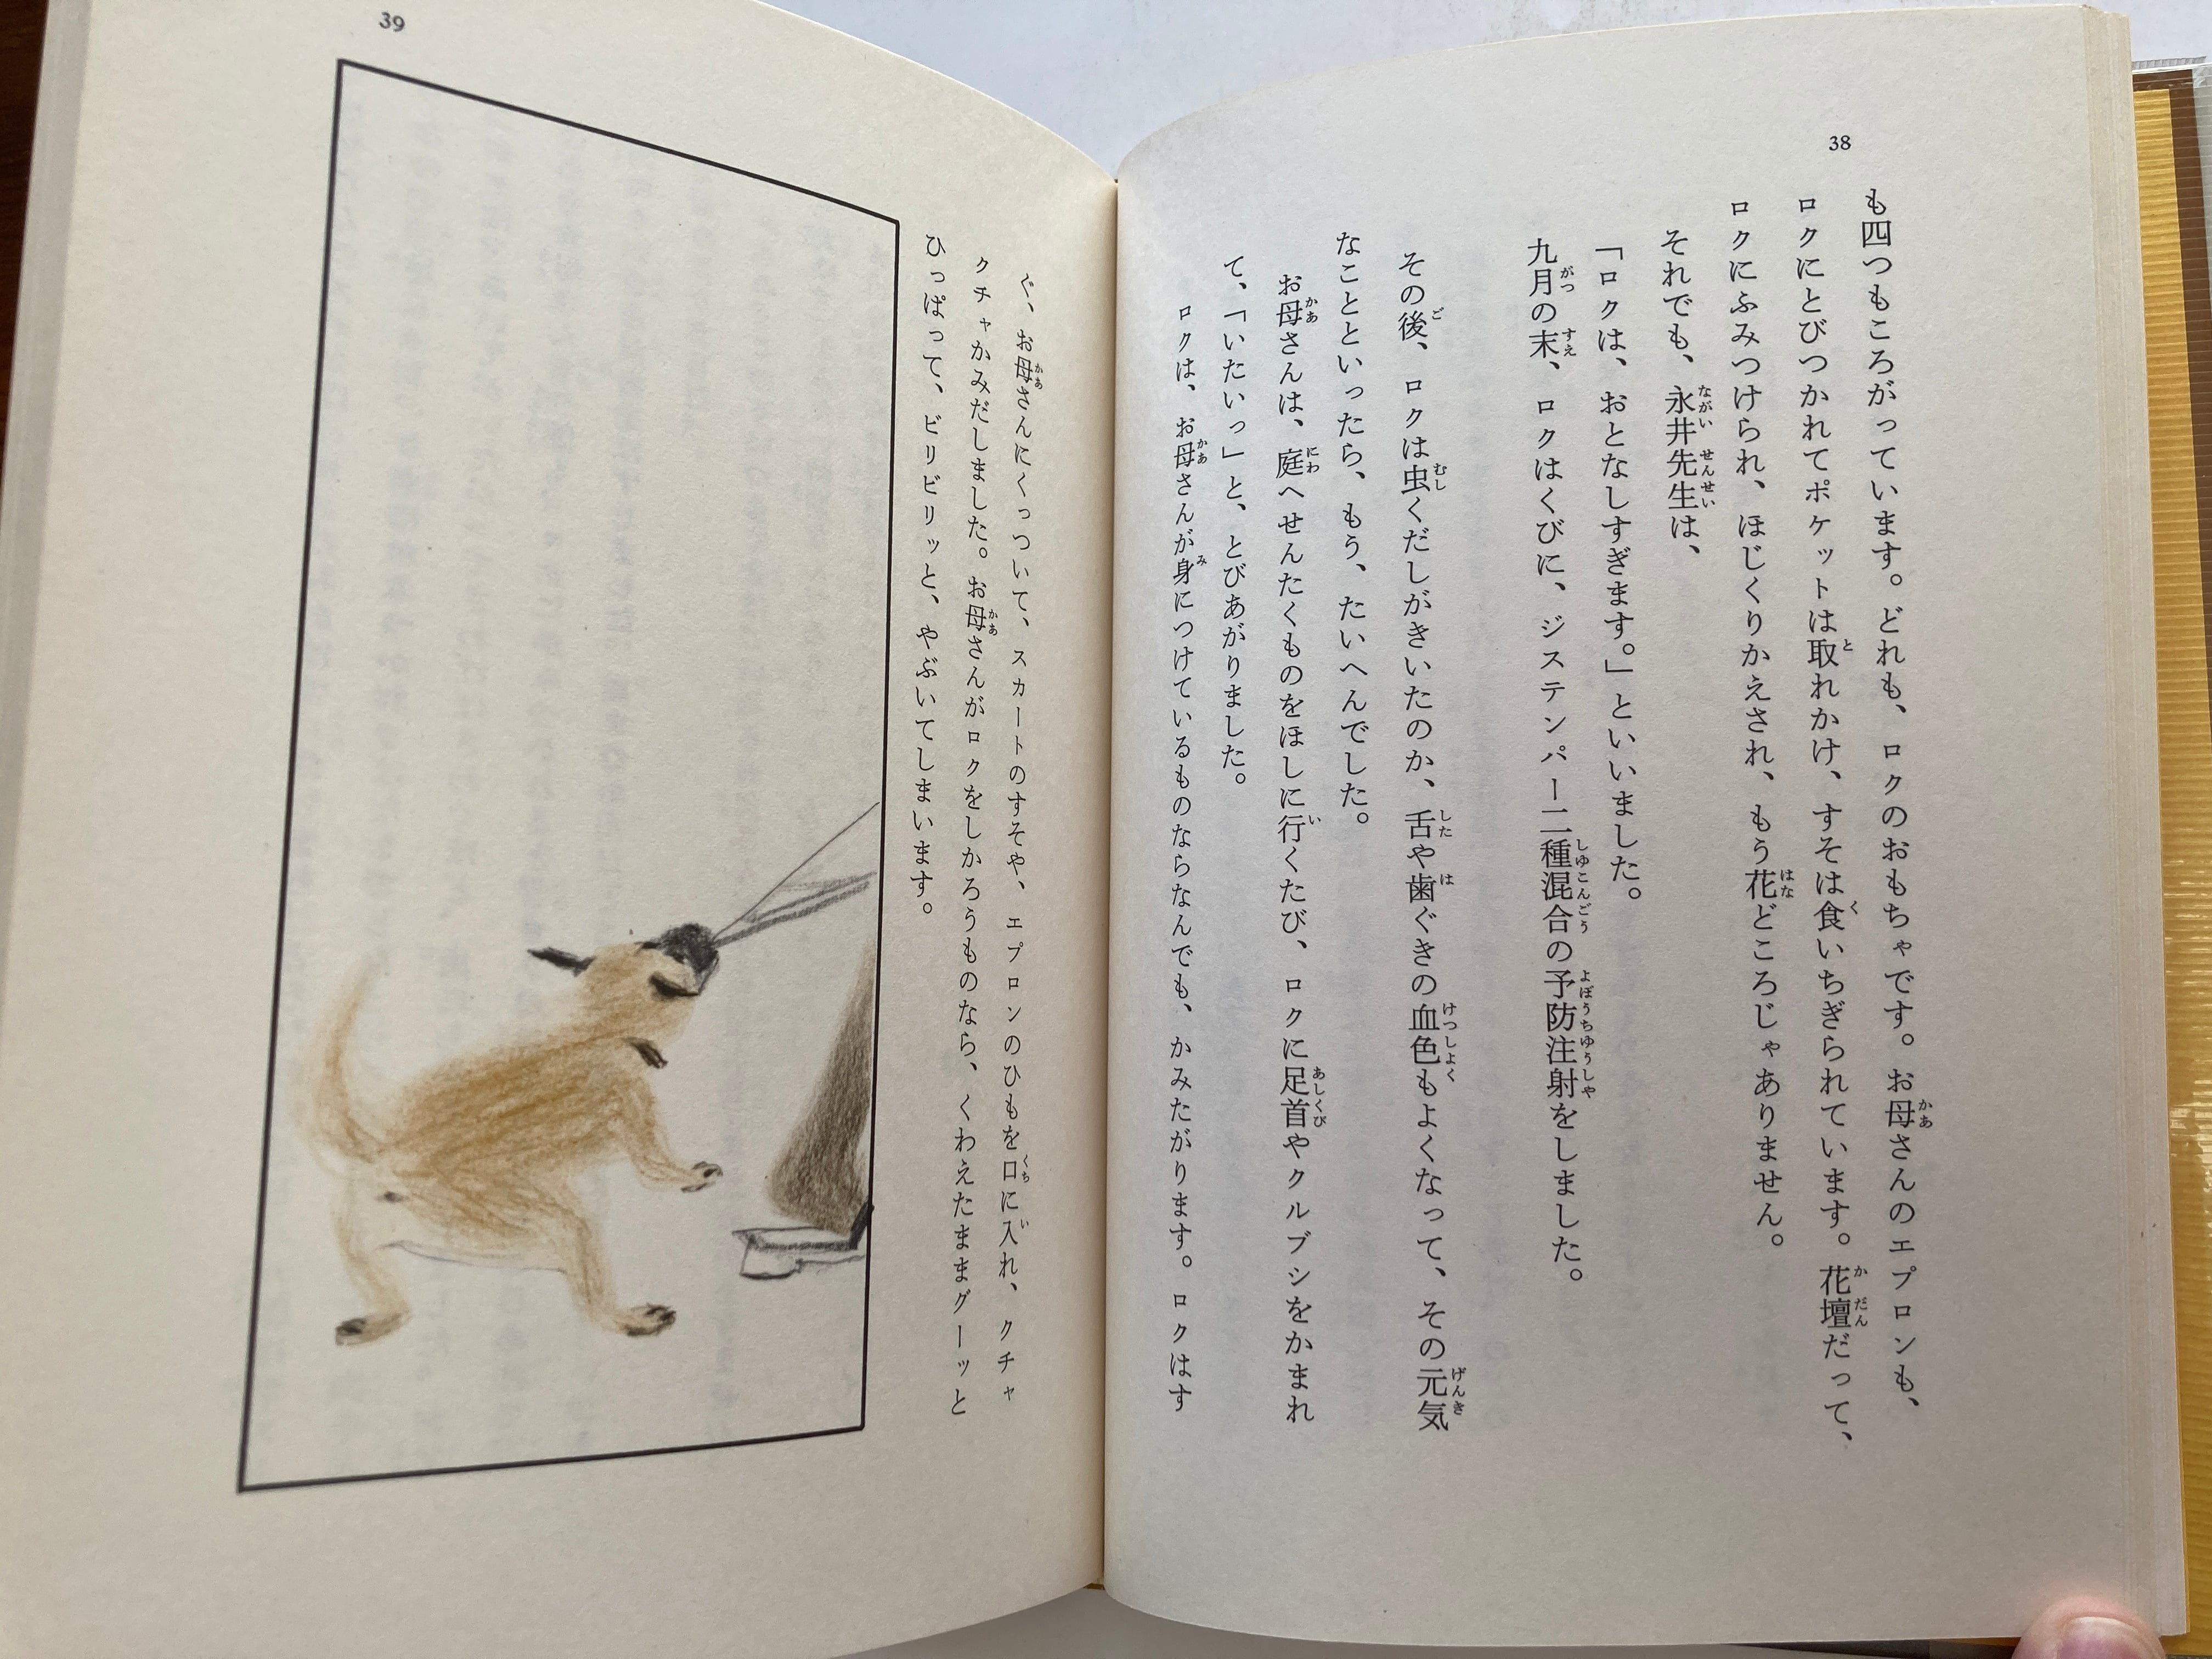 38
も四つもころがっています。どれも、ロクのおもちゃです。お母さんのエプロンも、
ロクにとびつかれてポケットは取れかけ、すそは食いちぎられています。花壇だって、
ロクにふみつけられ、ほじくりかえされ、もう花どころじゃありません。
それでも、永井先生は、
「ロクは、おとなしすぎます。」といいました。
九月の末、ロクはくびに、ジステンパー二種混合の予防注射をしました。
その後、ロクは虫くだしがきいたのか、舌や歯ぐきの血色もよくなって、その元気
なことといったら、もう、たいへんでした。
お母さんは、庭へせんたくものをほしに行くたび、ロクに足首やクルブシをかまれ
て、「いたいっ」と、とびあがりました。
ロクは、お母さんが身につけているものならなんでも、かみたがります。ロクはす
39
ぐ、お母さんにくっついて、スカートのすそや、エプロンのひもを口に入れ、クチャ
クチャかみだしました。お母さんがロクをしかろうものなら、くわえたままグーッと
ひっぱって、ビリビリッと、やぶいてしまいます。